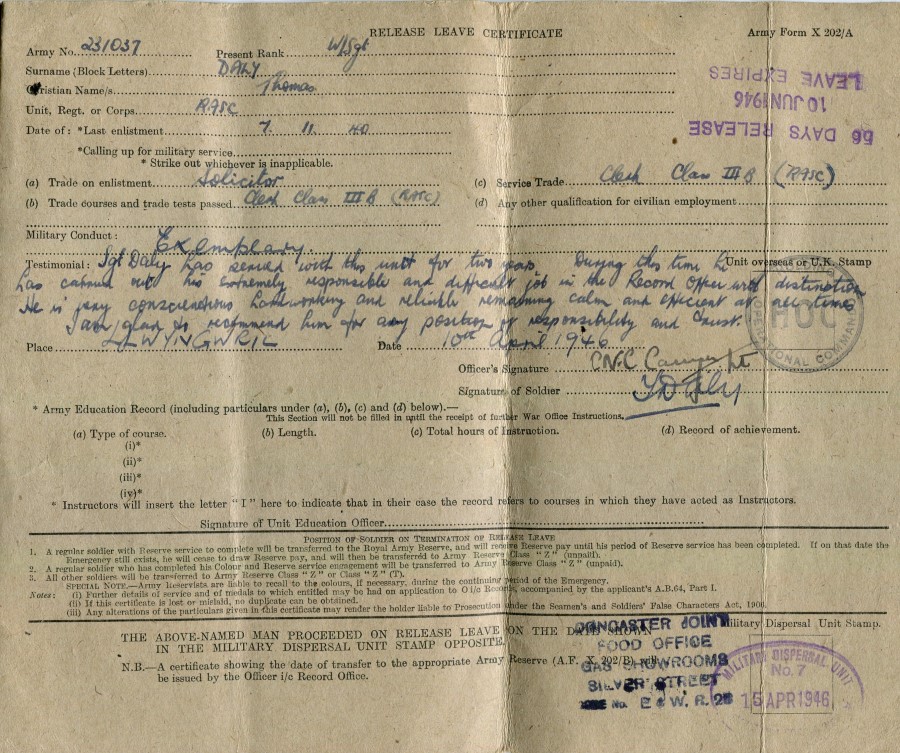 RELEASE LEAVE CERTIFICATE Army Form X 202/A
Army No. 231037 Present Rank W/Sgt
Surname (Block Letters) DALY
Christian Name/s Thomas
Unit, Regt. or Corps RASC
56 DAYS RELEASE
10 JUN 1946
LEAVE EXPIRES
Date of: *Last enlistment 7. 11. 40
*Calling up for military service
* Strike out whichever is inapplicable.
(a) Trade on enlistment Solicitor (c) Service Trade Clerk Class III B (RASC)
(b) Trade courses and trade tests passed Clerk Class III B (RASC) (d) Any other qualification for civilian employment
Military Conduct: Exemplary.
Testimonial: Sgt Daly has served with this unit for two years. During this time he Unit overseas or U.K. Stamp
has carried out his extremely responsible and difficult job in the Record Office with distinction
He is very conscientious hardworking and reliable remaining calm and efficient at all times
I am glad to recommend him for any position of responsibility and trust.
HOC
OPERATIONAL COMMAND
Place LLWYNGWRIL Date 10th April 1946
Officer's Signature C.N.C.
Signature of Soldier T Daly
* Army Education Record (including particulars under (a), (b), (c) and (d) below).—
This Section will not be filled in until the receipt of further War Office Instructions.
(a) Type of course. (b) Length. (c) Total hours of Instruction. (d) Record of achievement.
(i)*
(ii)*
(iii)*
(iv)*
* Instructors will insert the letter "I" here to indicate that in their case the record refers to courses in which they have acted as Instructors.
Signature of Unit Education Officer
POSITION OF SOLDIER ON TERMINATION OF RELEASE LEAVE
1. A regular soldier with Reserve service to complete will be transferred to the Royal Army Reserve, and will receive Reserve pay until his period of Reserve service has been completed. If on that date the
Emergency still exists, he will cease to draw Reserve pay, and will then be transferred to Army Reserve Class "Z" (unpaid).
2. A regular soldier who has completed his Colour and Reserve service engagement will be transferred to Army Reserve Class "Z" (unpaid).
3. All other soldiers will be transferred to Army Reserve Class "Z" or Class "Z" (T).
SPECIAL NOTE.—Army Reservists are liable to recall to the colours, if necessary, during the continuing period of the Emergency.
Notes: (i) Further details of service and of medals to which entitled may be had on application to O i/c Records, accompanied by the applicant's A.B.64, Part I.
(ii) If this certificate is lost or mislaid, no duplicate can be obtained.
(iii) Any alterations of the particulars given in this certificate may render the holder liable to Prosecution under the Seamen's and Soldiers' False Characters Act, 1906.
THE ABOVE-NAMED MAN PROCEEDED ON RELEASE LEAVE ON THE DATE SHOWN Military Dispersal Unit Stamp.
IN THE MILITARY DISPERSAL UNIT STAMP OPPOSITE.
N.B.—A certificate showing the date of transfer to the appropriate Army Reserve (A.F. X 202/B) will
be issued by the Officer i/c Record Office.
DONCASTER JOINT
FOOD OFFICE
GAS SHOWROOMS
SILVER STREET
No. E & W. R. 25
MILITARY DISPERSAL UNIT
No. 7
15 APR 1946